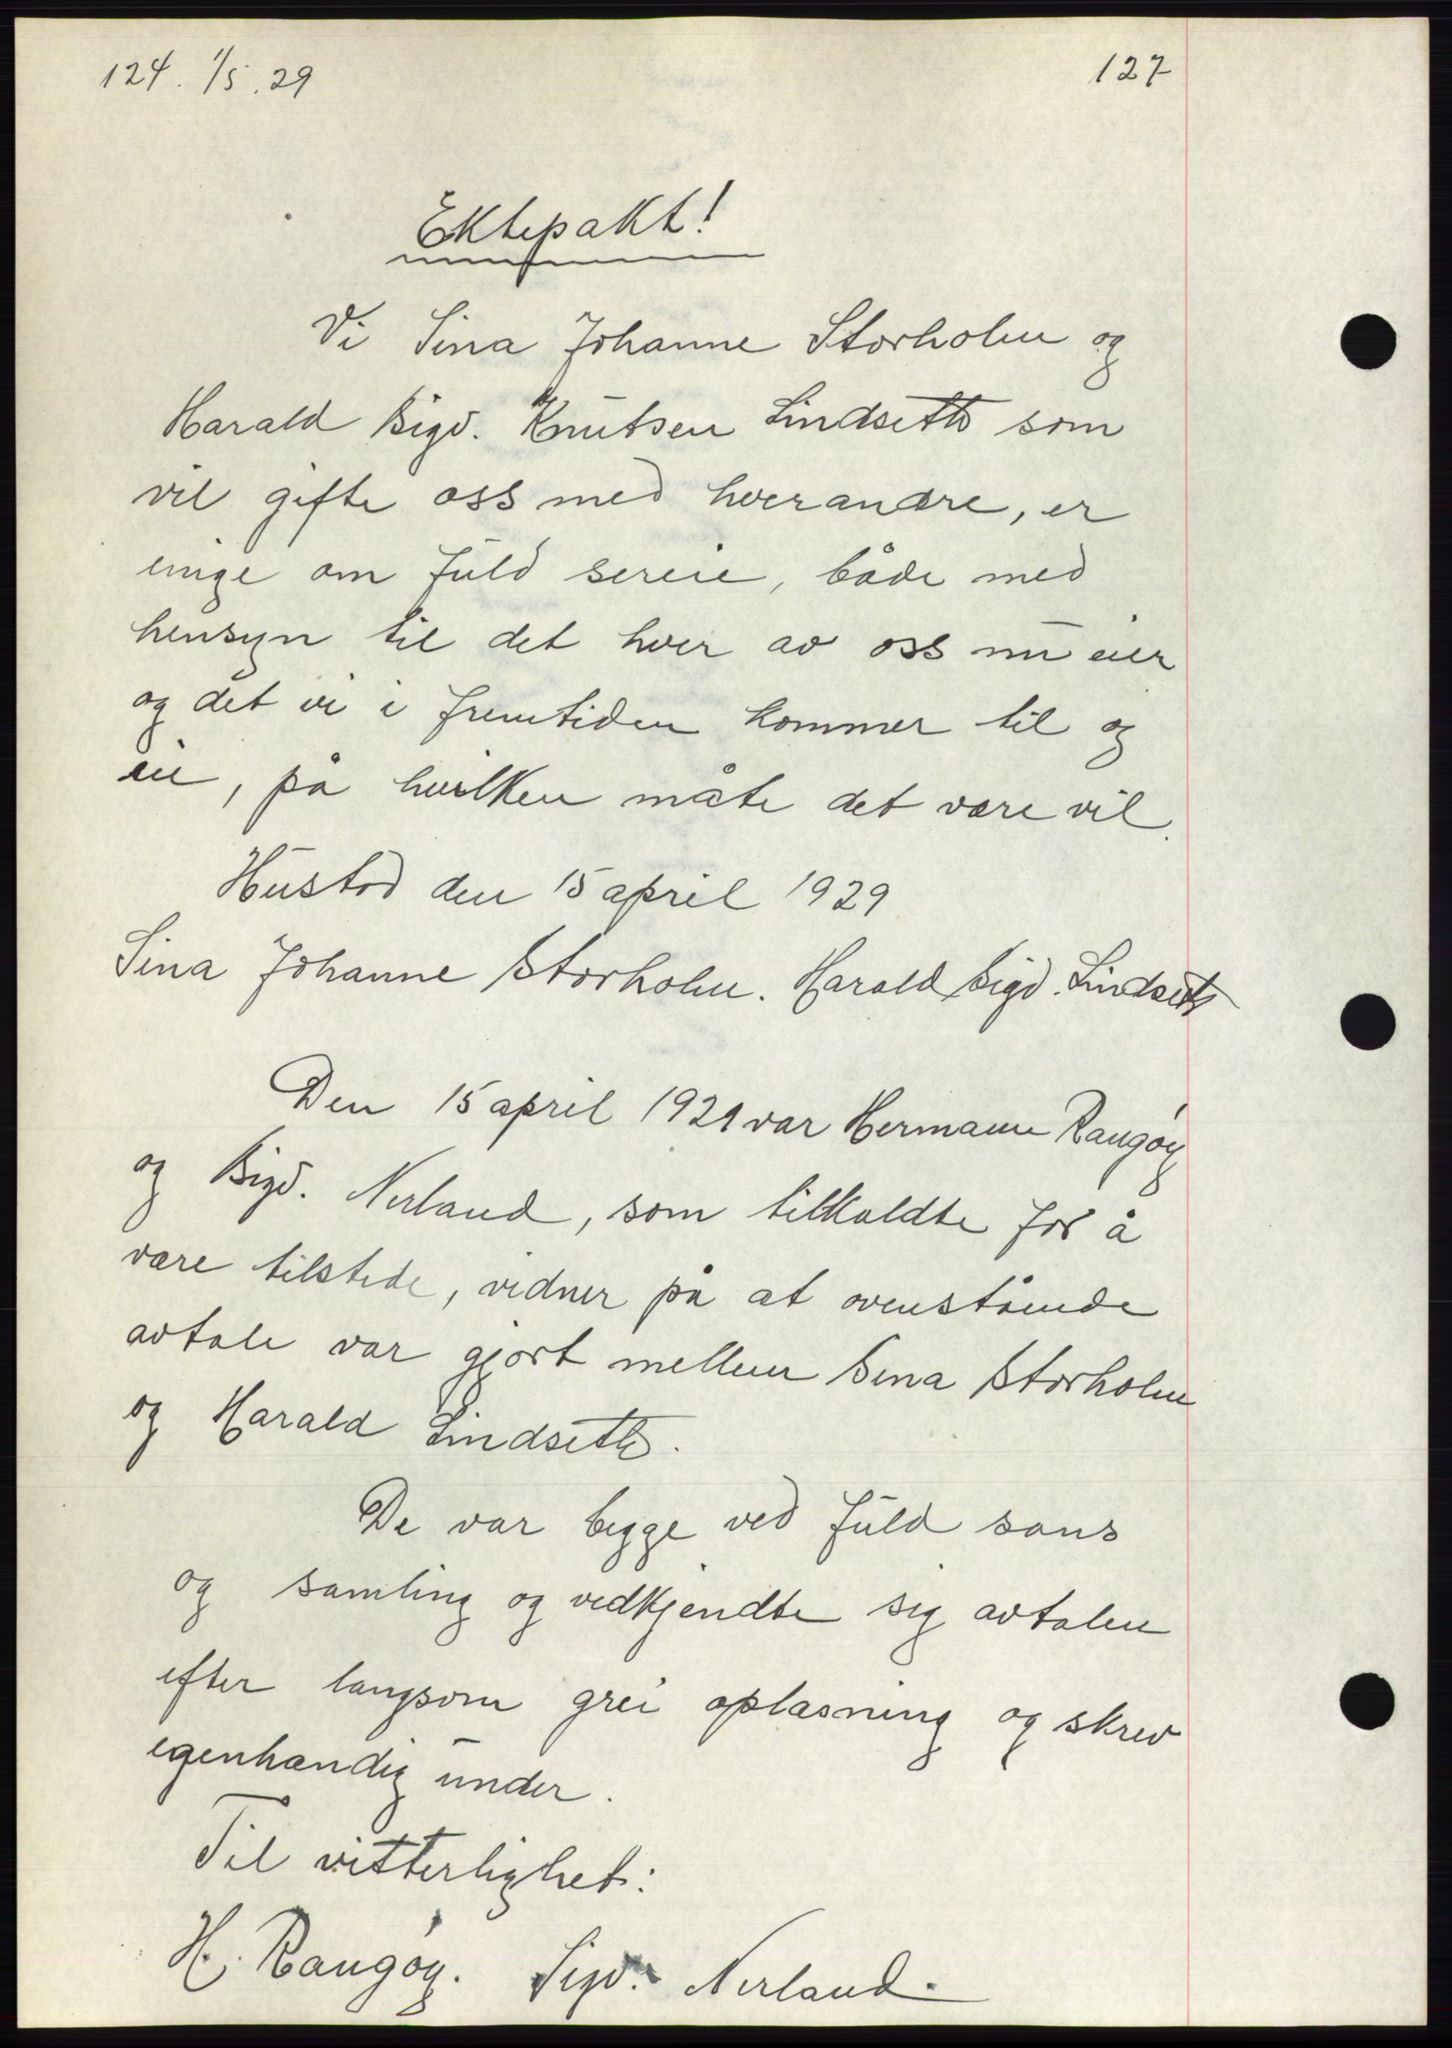 124. 1/5.29 127
Ektepakt!
Vi Sina Johanne Storholm og
Harald Sigv. Knutsen Lindseth som
vil gifte oss med hverandre, er
enige om fuld sereie, både med
hensyn til det hver av oss nu eier
og det vi i fremtiden kommer til og
eie, på hvilken måte det være vil.
Hustad den 15 april 1929
Sina Johanne Storholm. Harald Sigv. Lindseth
Den 15 april 1929 var Hermann Rangøy
og Sigv. Nerland, som tilkaldte for å
være tilstede, vidner på at ovenstående
avtale var gjort mellem Sina Storholm
og Harald Lindseth.
De var begge ved fuld sans
og samling og vedkjendte sig avtalen
efter langsom grei oplæsning og skrev
egenhændig under.
Til vitterlighet:
H. Rangøy. Sigv. Nerland.